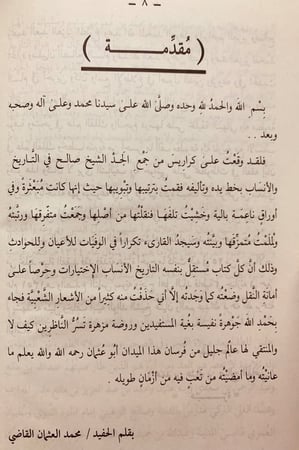 – ٨ –
( مُقدِّمـــة )
بِسْمِ اللهِ والحمدُ للهِ وحده وصلَّى الله علىٰ سيدنا محمد وعلىٰ آله وصحبه
وبعد . .
فلقد وقعْتُ علىٰ كراريسَ من جَمْعِ الجَدِّ الشيخ صالح في التَّاريخ
والأنساب بخط يده وتأليفه فقمتُ بترتيبها وتبويبها حيث إنها كانت مُبَعْثرة وفي
أوراق ناعمة بالية وخَشيْتُ تلفَهَا فنقلتُها من أصْلِها وجَمَعْتُ متفرِّقها ورتَّبتُه
ولَمْلَمْتُ مُتمزِّقها وبيَّنتُه وسَيجدُ القارىء تكراراً في الوفيَات للأعيان وللحوادث
وذلك أنَّ كلَّ كتاب مُستقلٌّ بنفسه التاريخ الأنساب الإختيارات وحِرصاً علىٰ
أمانة النَّقل وضعْته كما وَجدْته إلاَّ أني حَذَفْتُ منه كثيراً من الأشعار الشَّعْبيَّة فجاء
بحَمْدِ الله جَوْهرة نفيسة بغية المستفيدين وروضة مزهرة تسرُّ النَّاظرين كيف لا
والمنتقي لها عالمٌ جليل من فُرسان هذا الميدان أبو عُثمان رحمه الله والله يعلم ما
عانيْتُه وما أمضيْتُه من تَعَبٍ فيه من أزْمَانٍ طويله .
بقلم الحفيد / محمد العثمان القاضي